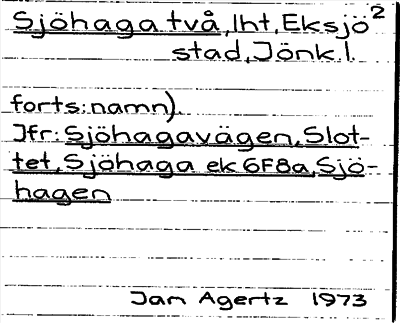 Sjöhaga två, lht, Eksjö 2
stad, Jönk. l.
forts: namn).
Jfr: Sjöhagavägen, Slot-
tet, Sjöhaga ek 6F8a, Sjö-
hagen
Jan Agertz 1973